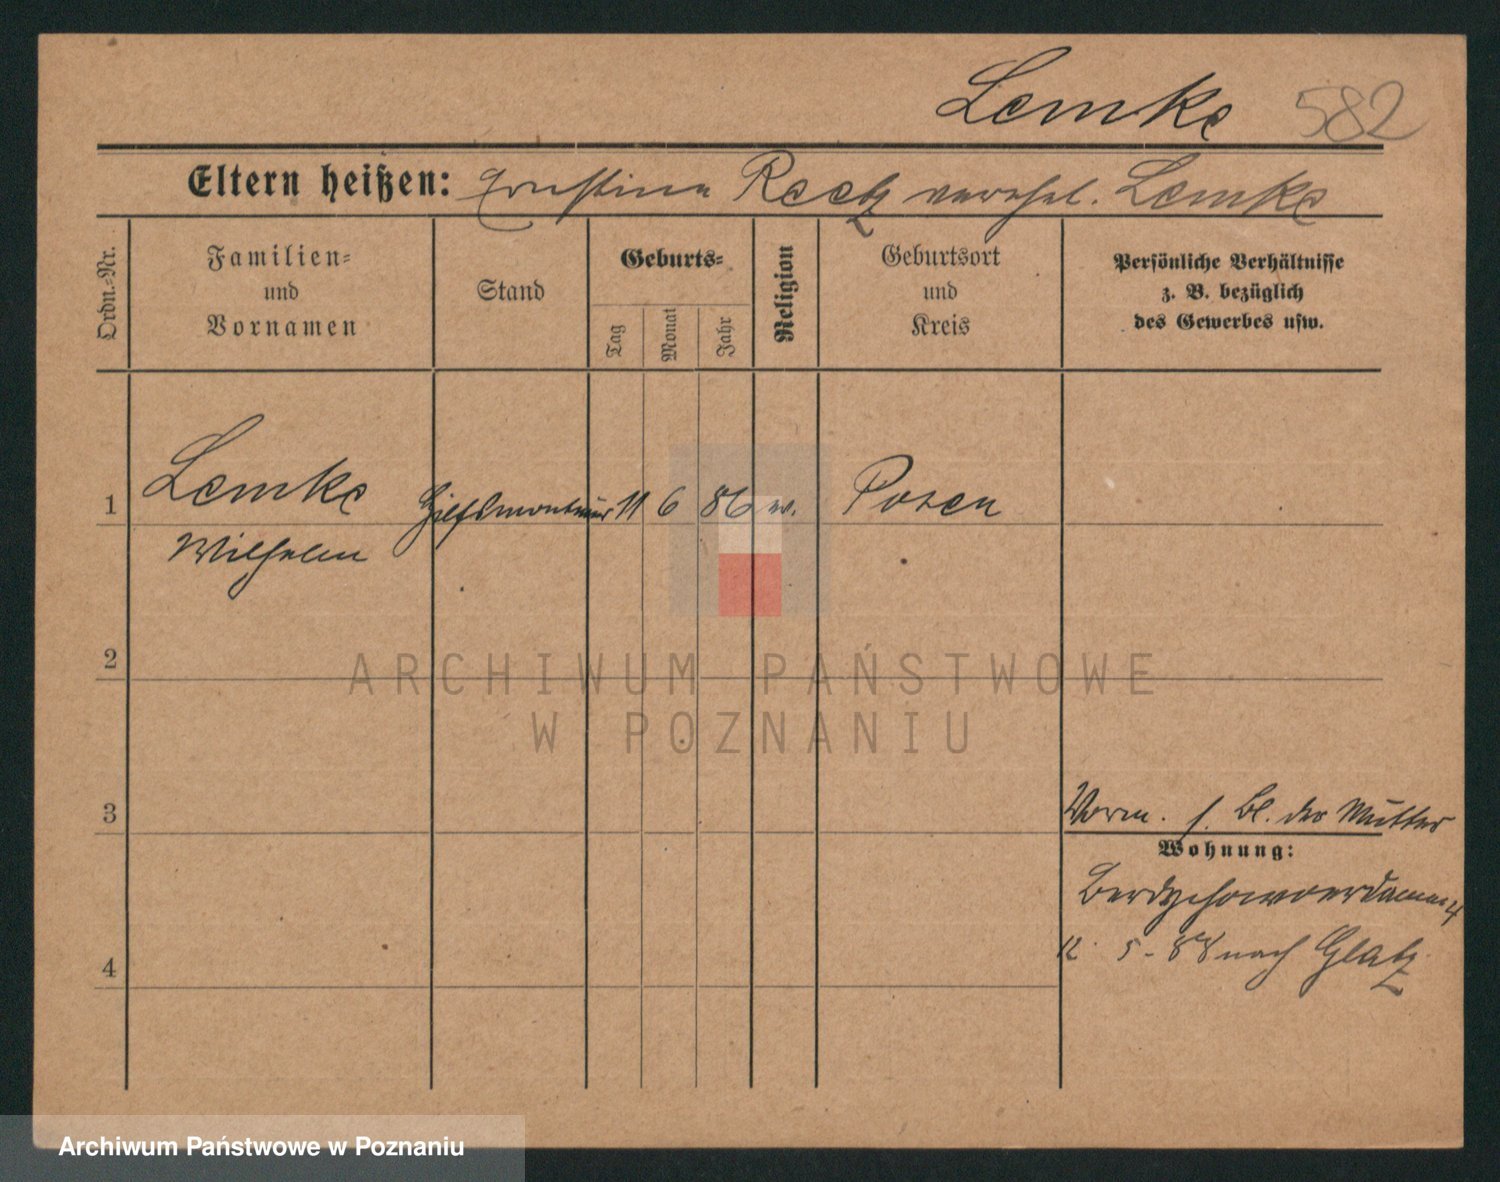 Lemke 582
Eltern heißen: Ernstine Reetz verehel. Lemke
Ordn.-Nr.
Familien-
und
Vornamen
Stand
Geburts-
Tag
Monat
Jahr
Religion
Geburtsort
und
Kreis
Persönliche Verhältnisse
z. B. bezüglich
des Gewerbes usw.
1 Lemke Hilfsmonteur 11 6 86 ev. Posen
Wilhelm
2
ARCHIWUM PAŃSTWOWE
W POZNANIU
3
Vorm. s. Bl. der Mutter
Wohnung:
Berdychowoerdamm 4
12. 5. 88 nach Glatz
4
Archiwum Państwowe w Poznaniu